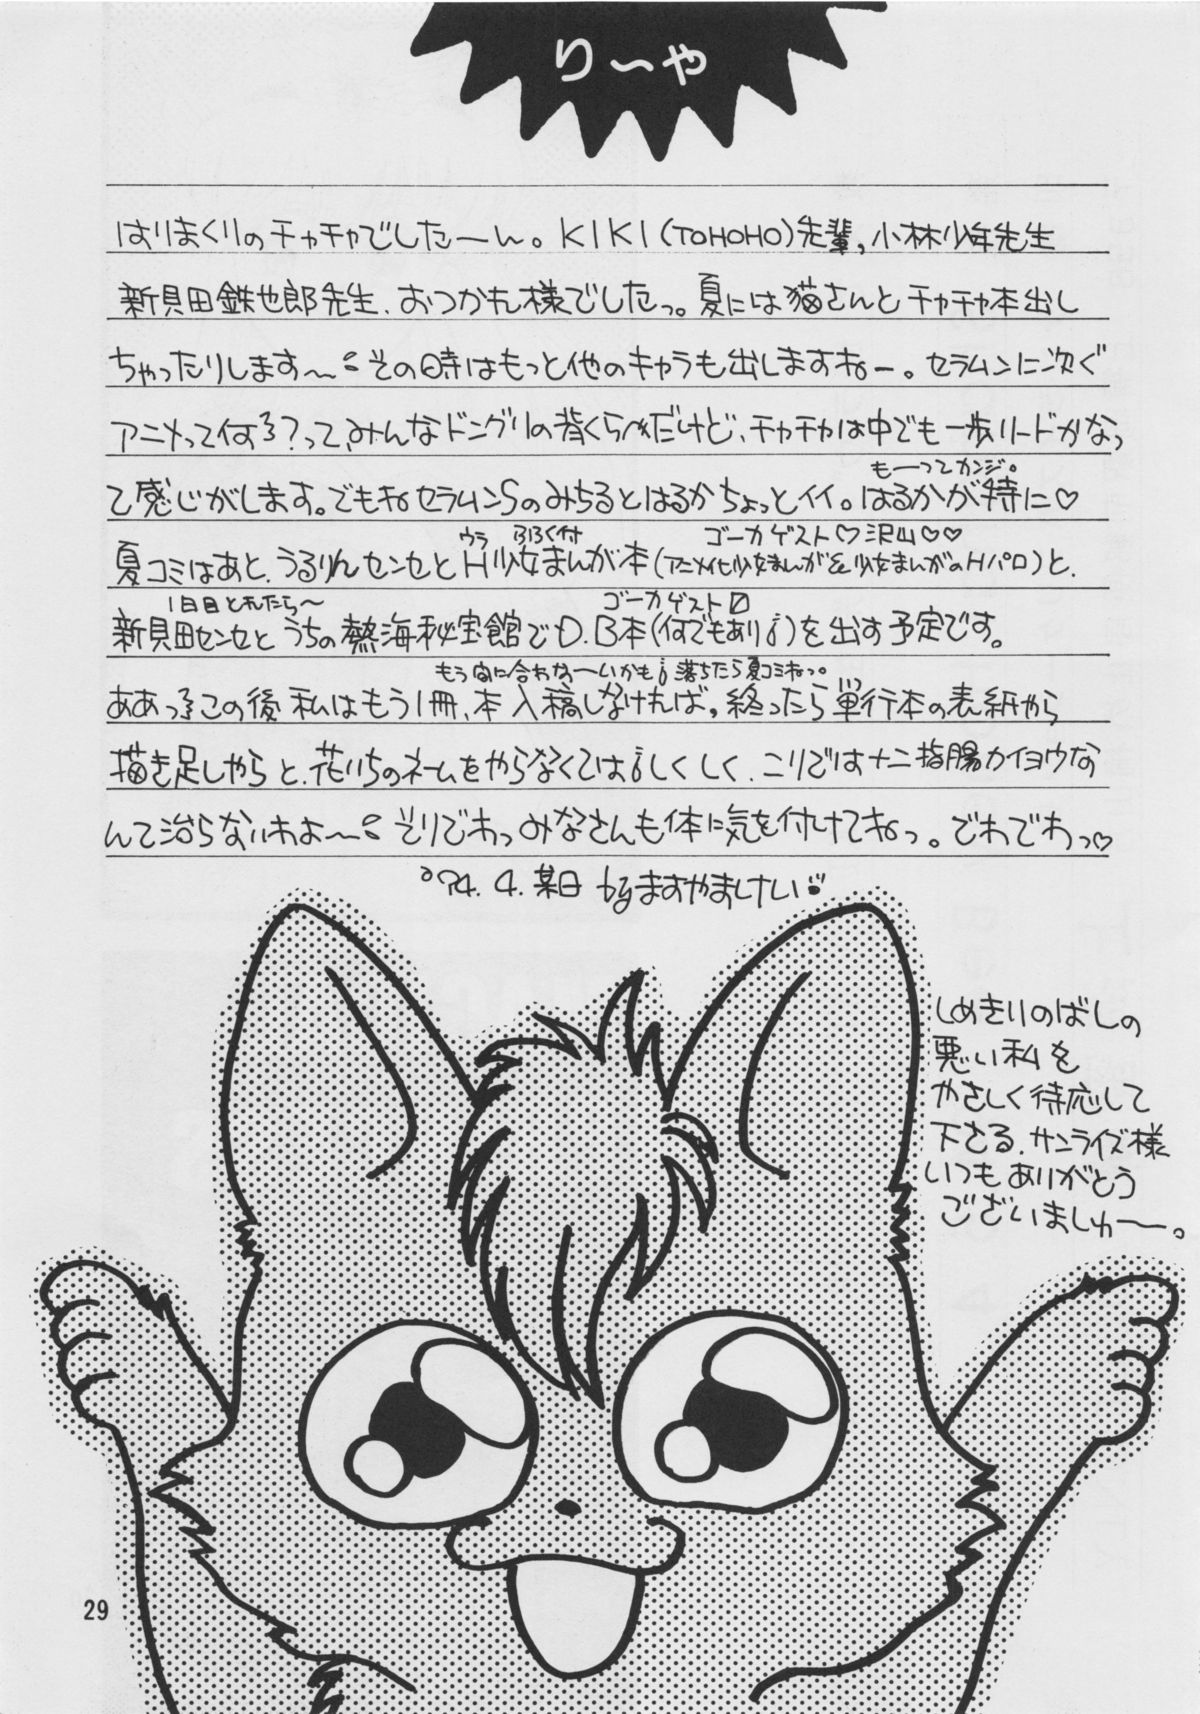 りーや
はりまくりのチャチャでしたーん。KIKI(TOHOHO)先輩,小林少年先生
新貝田鉄也郎先生、おつかれ様でしたっ。夏には猫さんとチャチャ本出し
ちゃったりします〜 その時はもっと他のキャラも出しますねー。セラムンに次ぐ
アニメって何ろ?って、みんなドングリの背くらべだけど、チャチャは中でも一歩リードかなっ
もーってカンジ。
て感じがします。でもね セラムンSのみちるとはるかちょっとイイ。はるかが特に♡
ウラ ふろく付 ゴーカゲスト♡沢山♡♡
夏コミはあと、うるりんセンセとH少女まんが本(アニメ化少女まんが&少女まんがのHパロ)と、
1日目とれたら〜 ゴーカゲスト
新貝田センセと うちの熱海秘宝館でD.B本(何でもあり)を出す予定です。
もう間に合わな〜いかも 落ちたら夏コミねっ。
ああっこの後 私はもう1冊、本 入稿しなければ。終ったら単行本の表紙やら
描き足しやらと、花いちのネームをやらなくては しくしく、こりでは十二指腸カイヨウな
んて治らないわよ〜 そりでわっみなさんも体に気を付けてねっ。でわでわっ♡
'94.4.某日 byますやましけい
しめきりのばしの
悪い私を
やさしく待応して
下さる、サンライズ様
いつもありがとう
ございましゅ〜。
29